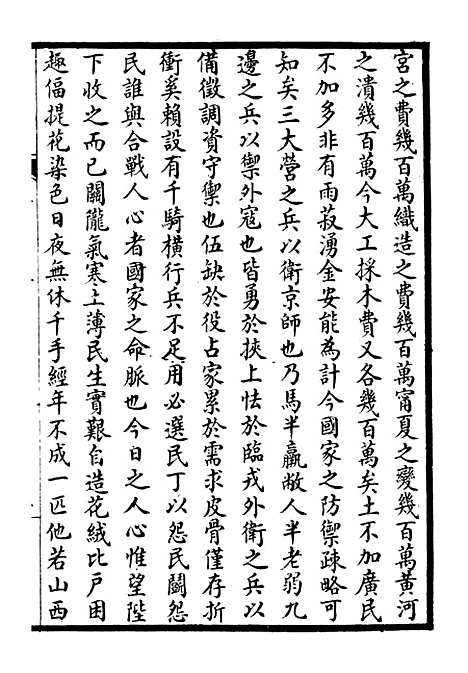 宮之費幾百萬織造之費幾百萬甯夏之變幾百萬黃河
之潰幾百萬今大工採木費又各幾百萬矣土不加廣民
不加多非有雨菽湧金安能為計今國家之防禦疎略可
知矣三大營之兵以衛京師也乃馬半羸敝人半老弱九
邊之兵以禦外寇也皆勇於挾上怯於臨戎外衛之兵以
備徵調資守禦也伍缺於役占家累於需求皮骨僅存折
衝奚賴設有千騎橫行兵不足用必選民丁以怨民鬭怨
民誰與合戰人心者國家之命脈也今日之人心惟望陛
下收之而已關隴氣寒土薄民生實艱自造花絨比戶困
趣偪提花染色日夜無休千手經年不成一匹他若山西